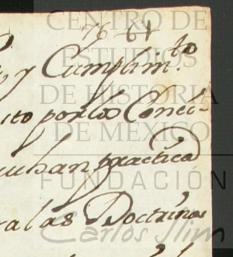 76 64
CENTRO DE
y Cumplim.to
ESTUDIOS
DE HISTORIA
ito por los Conci-
DE MÉXICO
practica
FUNDACIÓN
a las Doctrinas
Carlos Slim